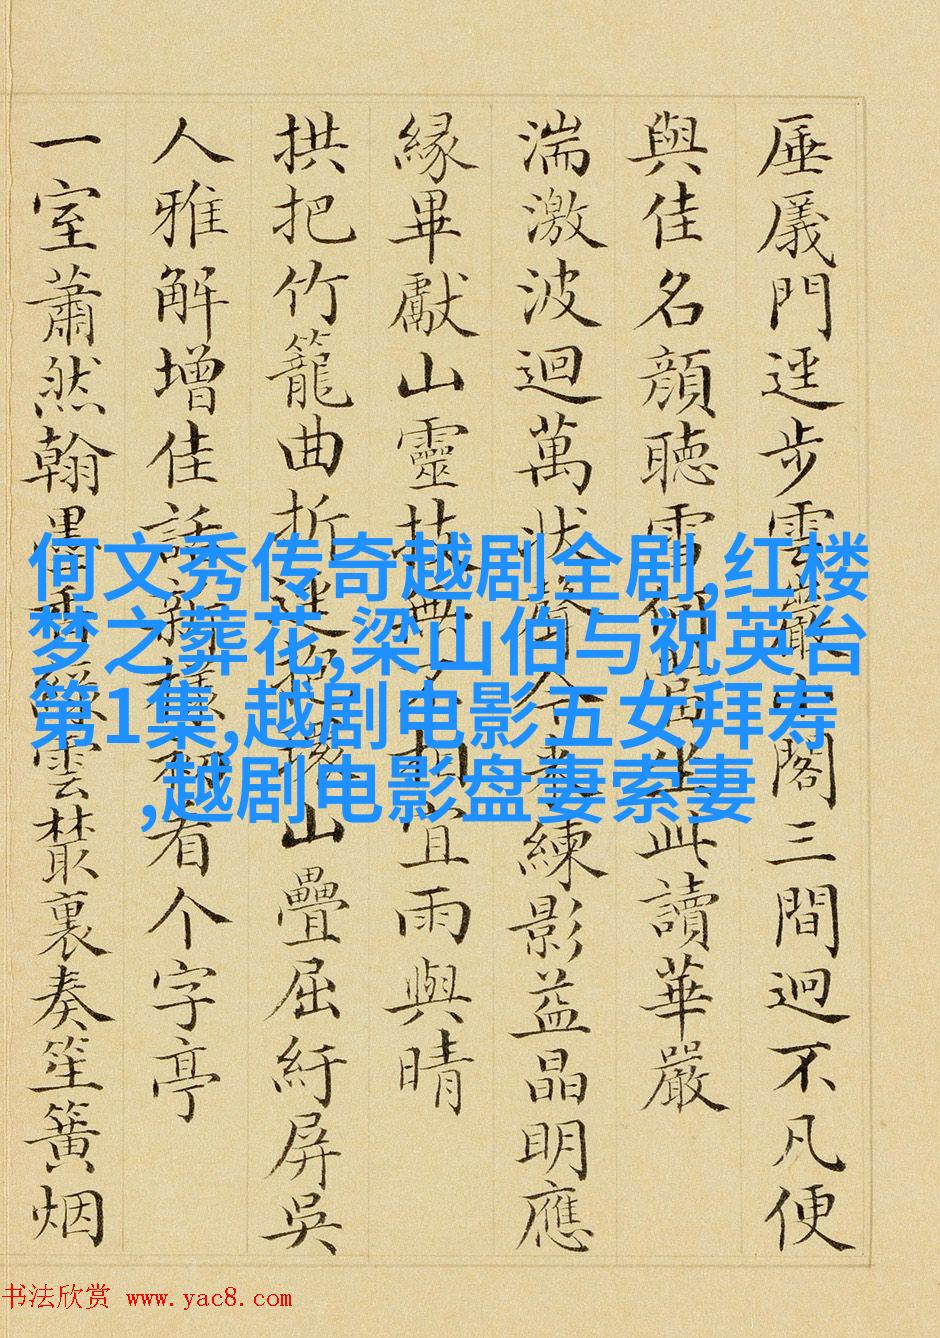 厜㕒門逕步雲巖閣三間迥不凡便
與佳名顔聽雪此讀華嚴
湍激波迴萬狀聲練影益晶明應
緣畢獻山靈技無相宜雨與晴
拱把竹籠曲折逕山疊屈紆屏吳
人雅解增佳話新樣有个字亭
一室蕭然翰墨香雲叢裏奏笙簧烟
何文秀传奇越剧全剧,红楼
梦之葬花,梁山伯与祝英台
第1集,越剧电影五女拜寿
,越剧电影盘妻索妻
书法欣赏 www.yac8.com